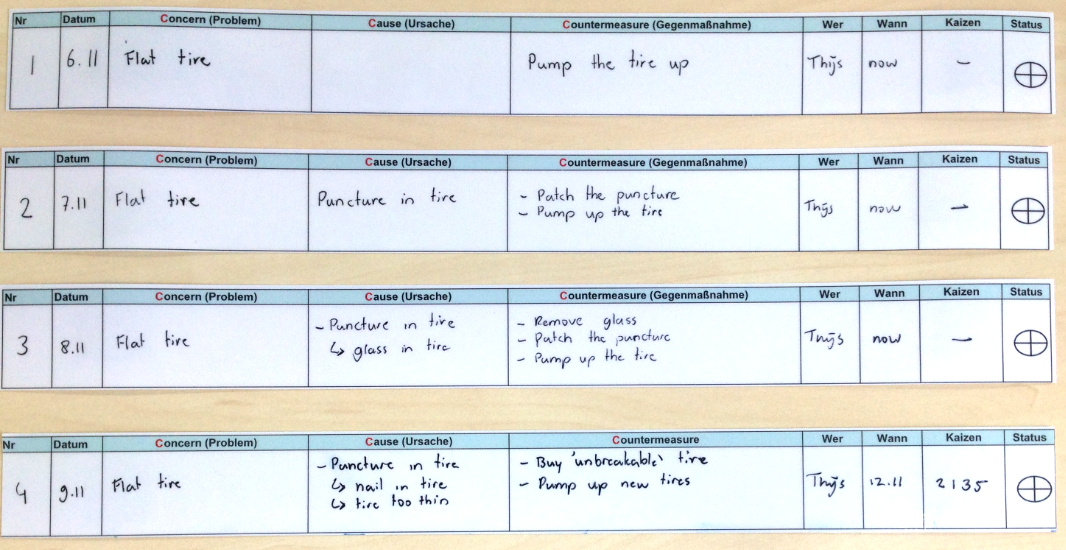 Nr Datum Concern (Problem) Cause (Ursache) Countermeasure (Gegenmaßnahme) Wer Wann Kaizen Status
1 6.11 Flat tire Pump the tire up Thijs now -
Nr Datum Concern (Problem) Cause (Ursache) Countermeasure (Gegenmaßnahme) Wer Wann Kaizen Status
2 7.11 Flat tire Puncture in tire - Patch the puncture Thijs now -
- Pump up the tire
Nr Datum Concern (Problem) Cause (Ursache) Countermeasure (Gegenmaßnahme) Wer Wann Kaizen Status
3 8.11 Flat tire - Puncture in tire - Remove glass Thijs now -
↳ glass in tire - Patch the puncture
- Pump up the tire
Nr Datum Concern (Problem) Cause (Ursache) Countermeasure Wer Wann Kaizen Status
4 9.11 Flat tire - Puncture in tire - Buy 'unbreakable' tire Thijs 12.11 2135
↳ nail in tire - Pump up new tires
↳ tire too thin